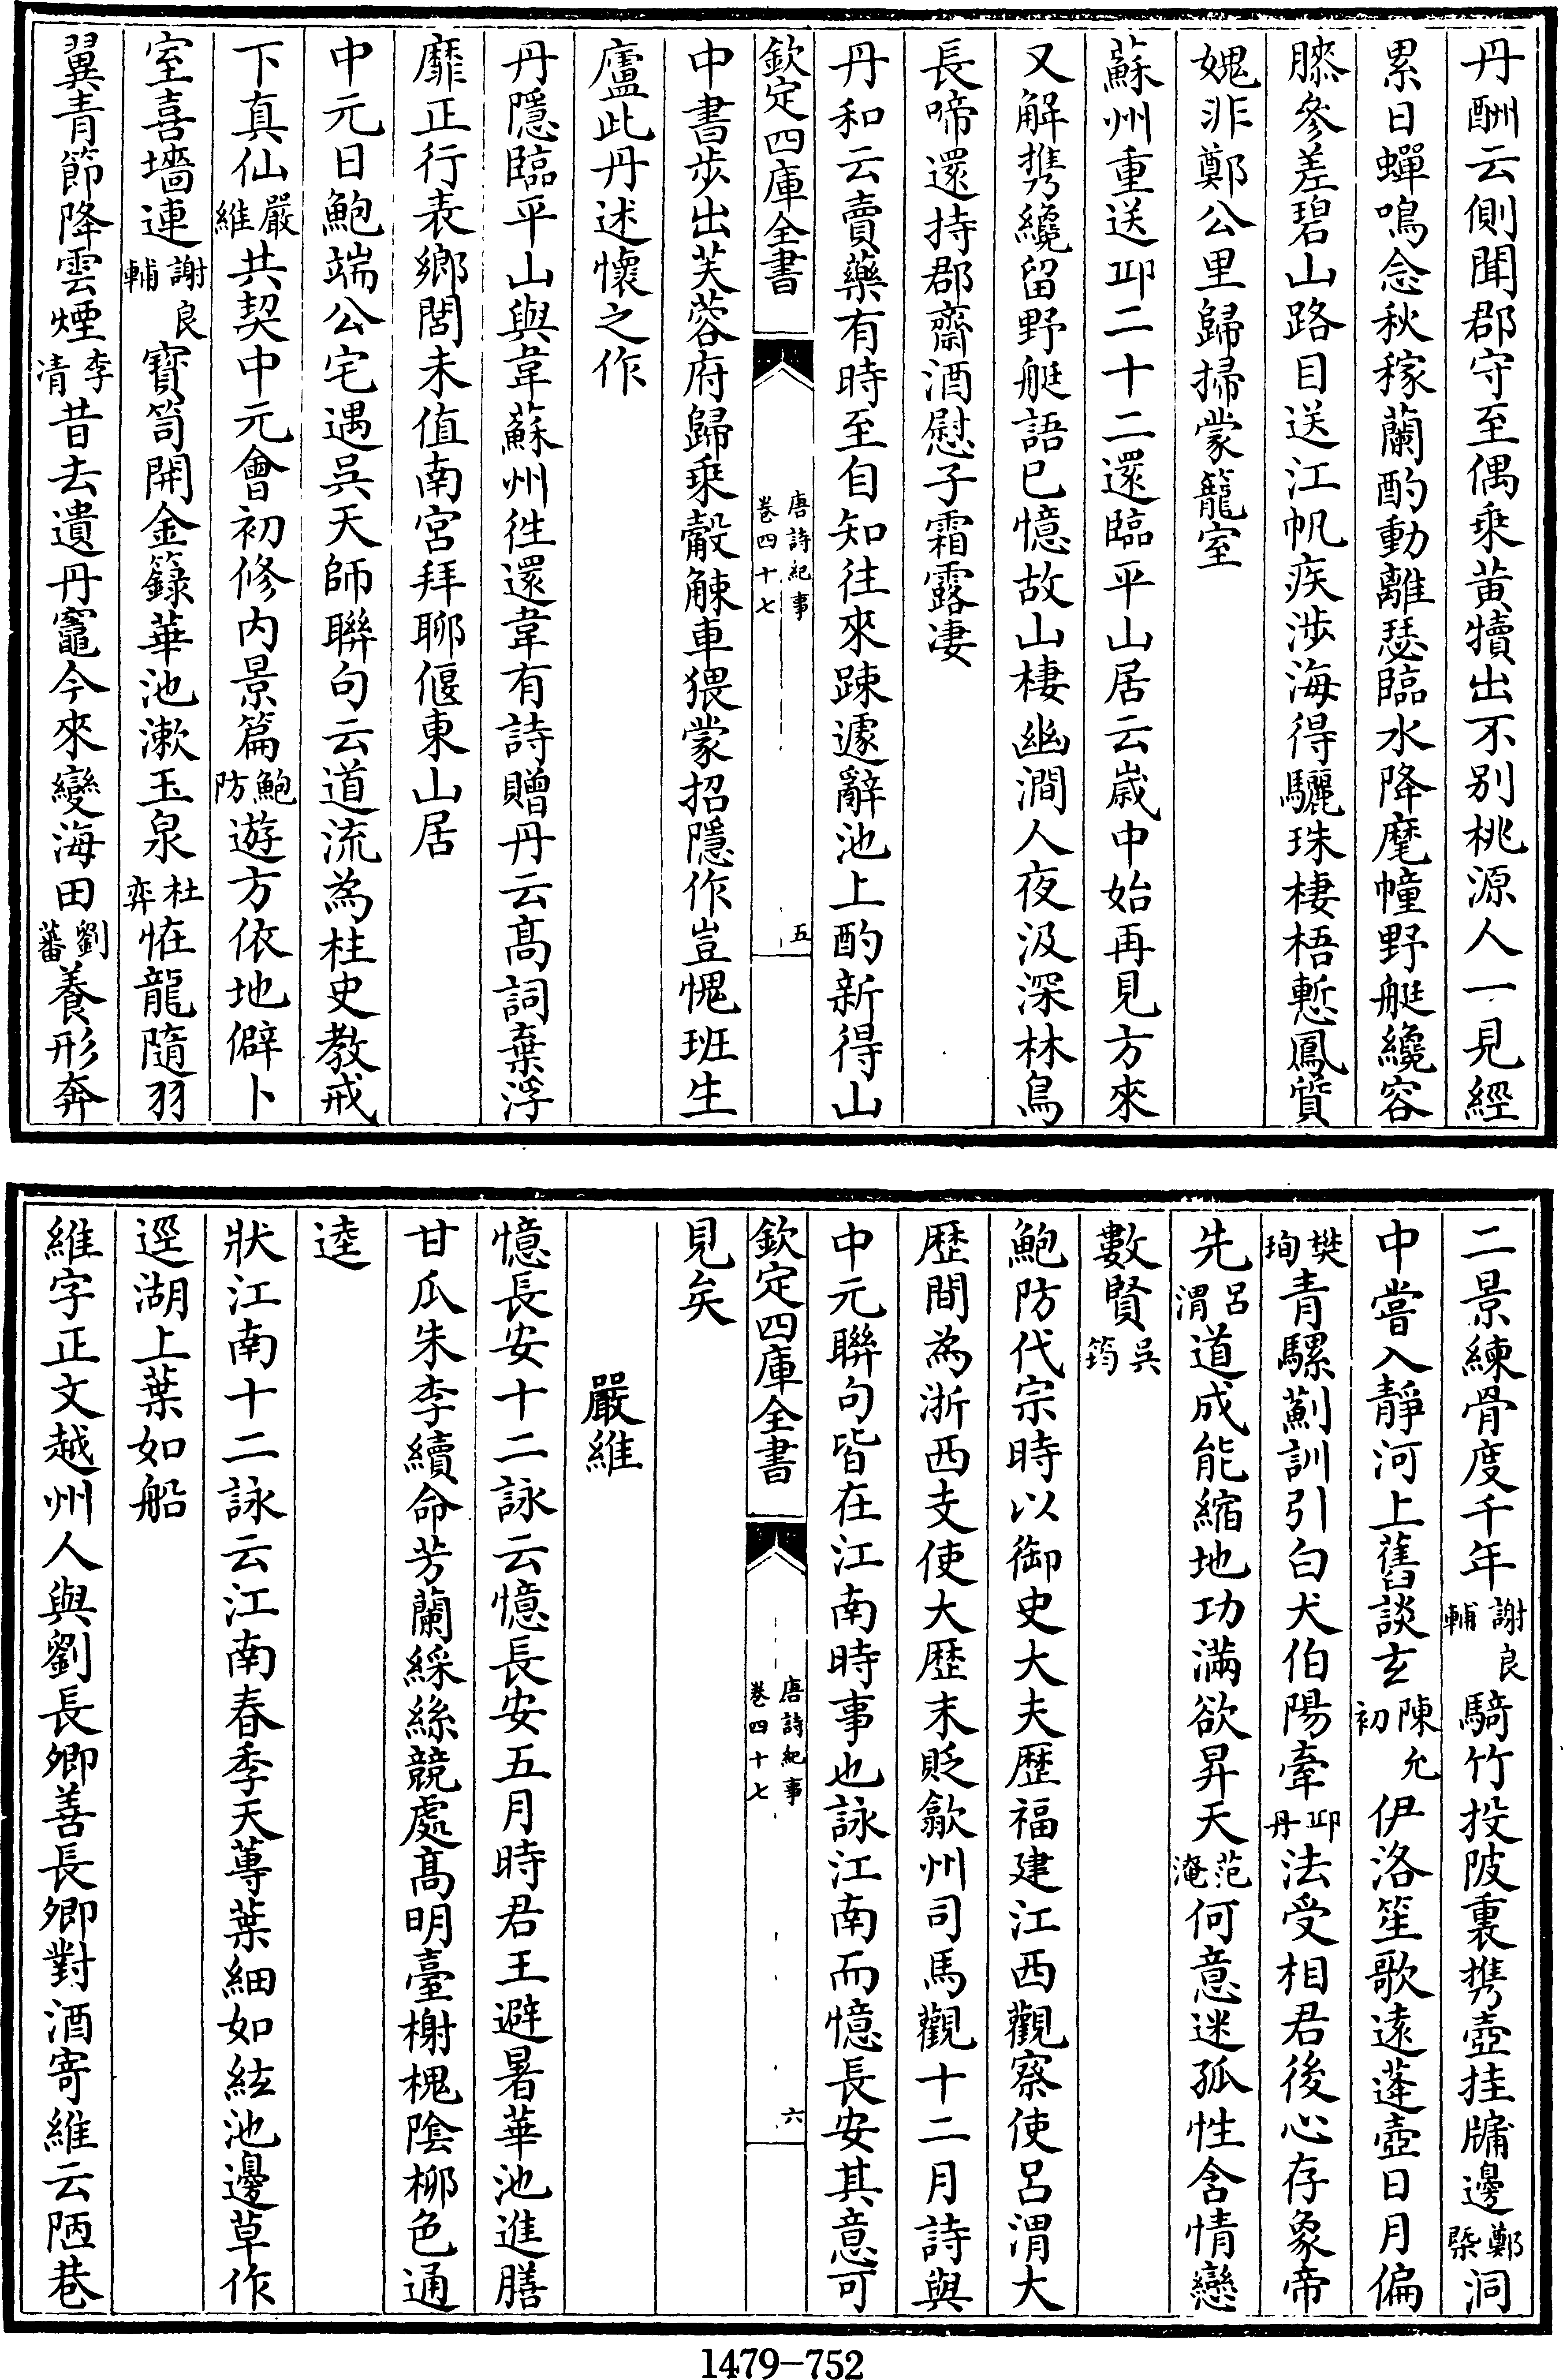 丹酬云側聞郡守至偶乘黃犢出不别桃源人一見經
累日蟬鳴念秋稼蘭酌動離瑟臨水降麾幢野艇纔容
膝參差碧山路目送江帆疾涉海得驪珠棲梧慙鳳質
媿非鄭公里歸掃蒙籠室
蘇州重送邱二十二還臨平山居云歳中始再見方來
又解携纔留野艇語已憶故山棲幽澗人夜汲深林鳥
長啼還持郡齋酒慰子霜露凄
丹和云賣藥有時至自知往來踈遽辭池上酌新得山
欽定四庫全書
唐詩紀事
卷四十七
五
中書步出芙蓉府歸乘觳觫車猥蒙招隱作豈愧班生
廬此丹述懐之作
丹隱臨平山與韋蘇州徃還韋有詩贈丹云髙詞棄浮
靡正行表鄉閭未值南宮拜聊偃東山居
中元日鮑端公宅遇呉天師聯句云道流為柱史教戒
下真仙嚴維共契中元會初修内景篇鮑防遊方依地僻卜
室喜墻連謝良輔寳笥開金籙華池漱玉泉杜弈恠龍隨羽
翼青節降雲煙李清昔去遺丹竈今來變海田劉蕃養形奔
二景練骨度千年謝良輔騎竹投陂裏携壺挂牖邊鄭槩洞
中嘗入靜河上舊談玄陳允初伊洛笙歌遠蓬壺日月偏
樊珣青騾薊訓引白犬伯陽牽邱丹法受相君後心存象帝
先吕渭道成能縮地功滿欲昇天范淹何意迷孤性含情戀
數賢吳筠
鮑防代宗時以御史大夫歴福建江西觀察使呂渭大
歴間為浙西支使大歴末貶歙州司馬觀十二月詩與
中元聯句皆在江南時事也詠江南而憶長安其意可
欽定四庫全書
唐詩紀事
卷四十七
六
見矣
嚴維
憶長安十二詠云憶長安五月時君王避暑華池進膳
甘瓜朱李續命芳蘭綵絲競處髙明臺榭槐陰柳色通
逵
狀江南十二詠云江南春季天蓴葉細如絃池邊草作
逕湖上葉如船
維字正文越州人與劉長卿善長卿對酒寄維云陋巷
1479-752